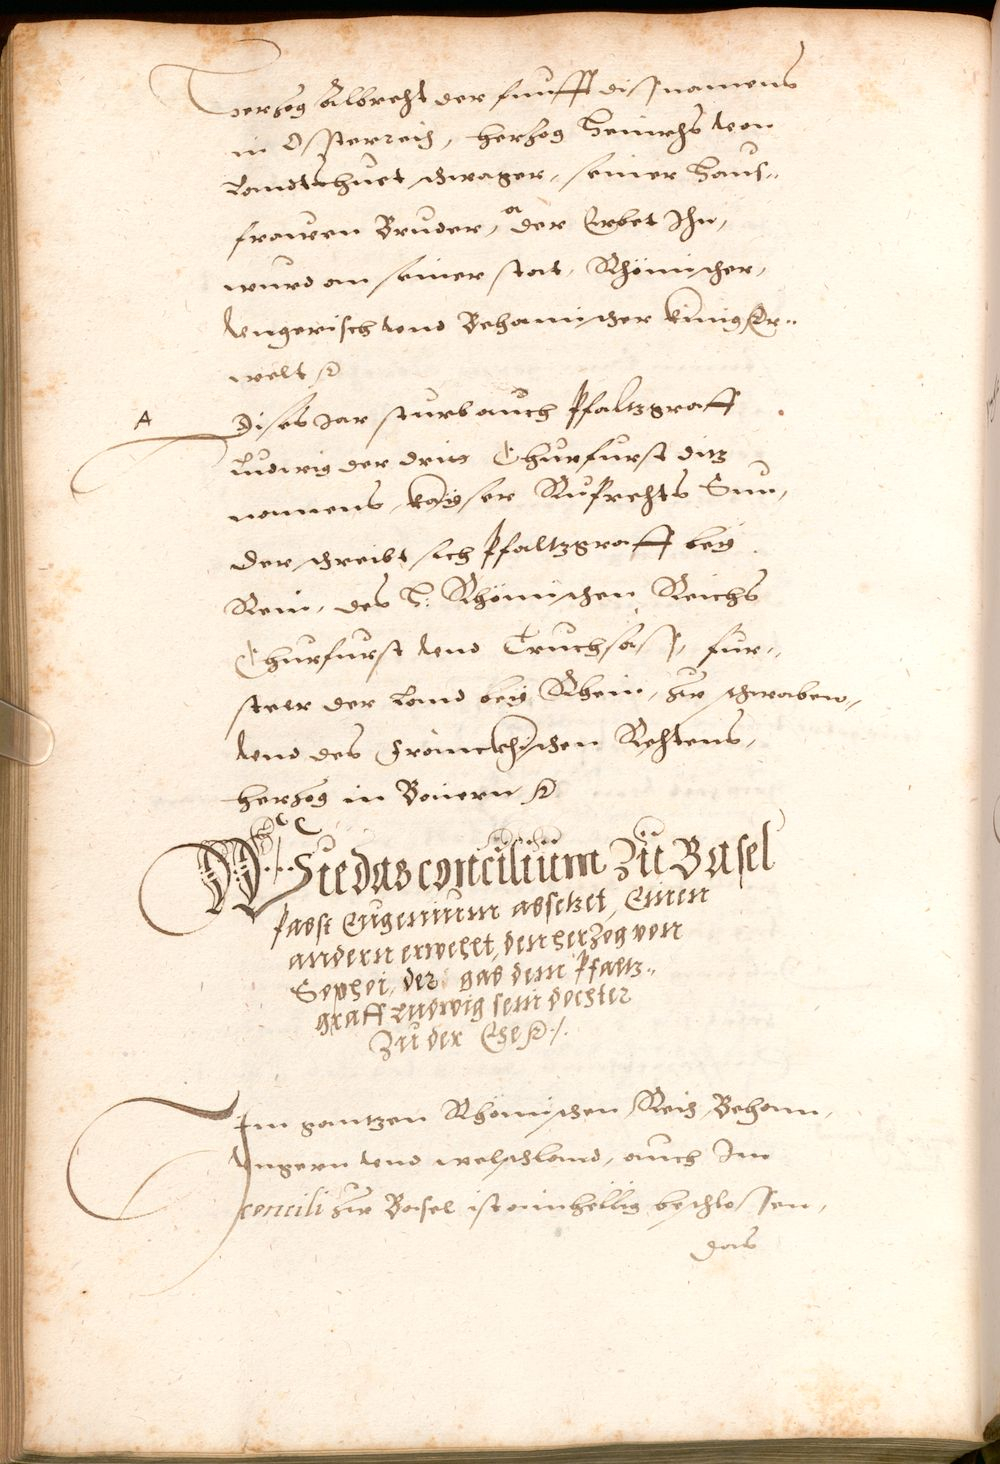 Herzog Albrecht der funfft diss namens
in Osterreich, herzog Heinrichs von
Landtshuet schwager, seiner Haus¬
frawen Bruder, der Erbet Ihn,
wurd an seiner stat, Rhömischer,
Vngerisch vnd Behamischer künig Er¬
welt
A
Dises Jar sturb auch Pfaltzgraff
Ludwig der dritt Churfurst ditz
namens, kayser Ruprechts Sun,
Der schreibt sich Pfaltzgraff bey
Rein, des H: Rhömischen Reichs
Churfurst vnd Truchsäß, fur¬
seher der Land bey Rhein, zu schwaben,
vnd des Fränckhischen Rechtens,
herzog in Baiern
Wie das concilium Zu Basel
Pabst Eugenium absetzet, Einen
andern erwehlt, den herzog von
Sophoi, der gab dem Pfaltz¬
graff Ludwig sein dochter
Zu der Ehe
Im gantzen Rhömischen Reich Beham,
Vngern vnd welschland, auch Im
concili zu Basel ist ainhellig beschlossen,
das